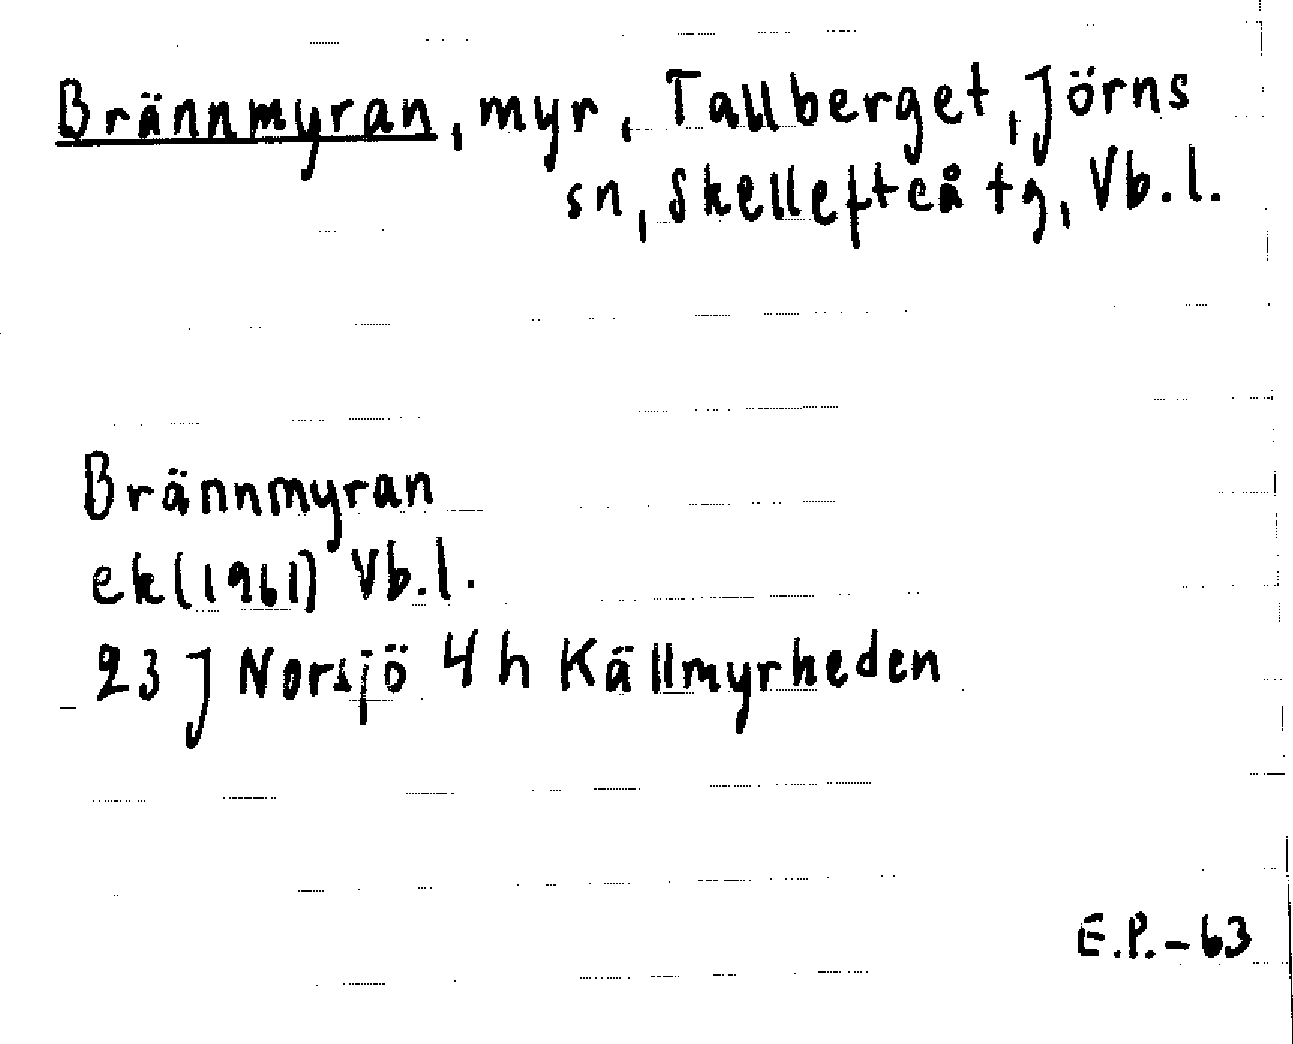 Brännmyran, myr, Tallberget, Jörns
sn, Skellefteå tg, Vb.l.
Brännmyran
ek(1961) Vb.l.
23 J Norsjö 4 h Källmyrheden
E.P.-63